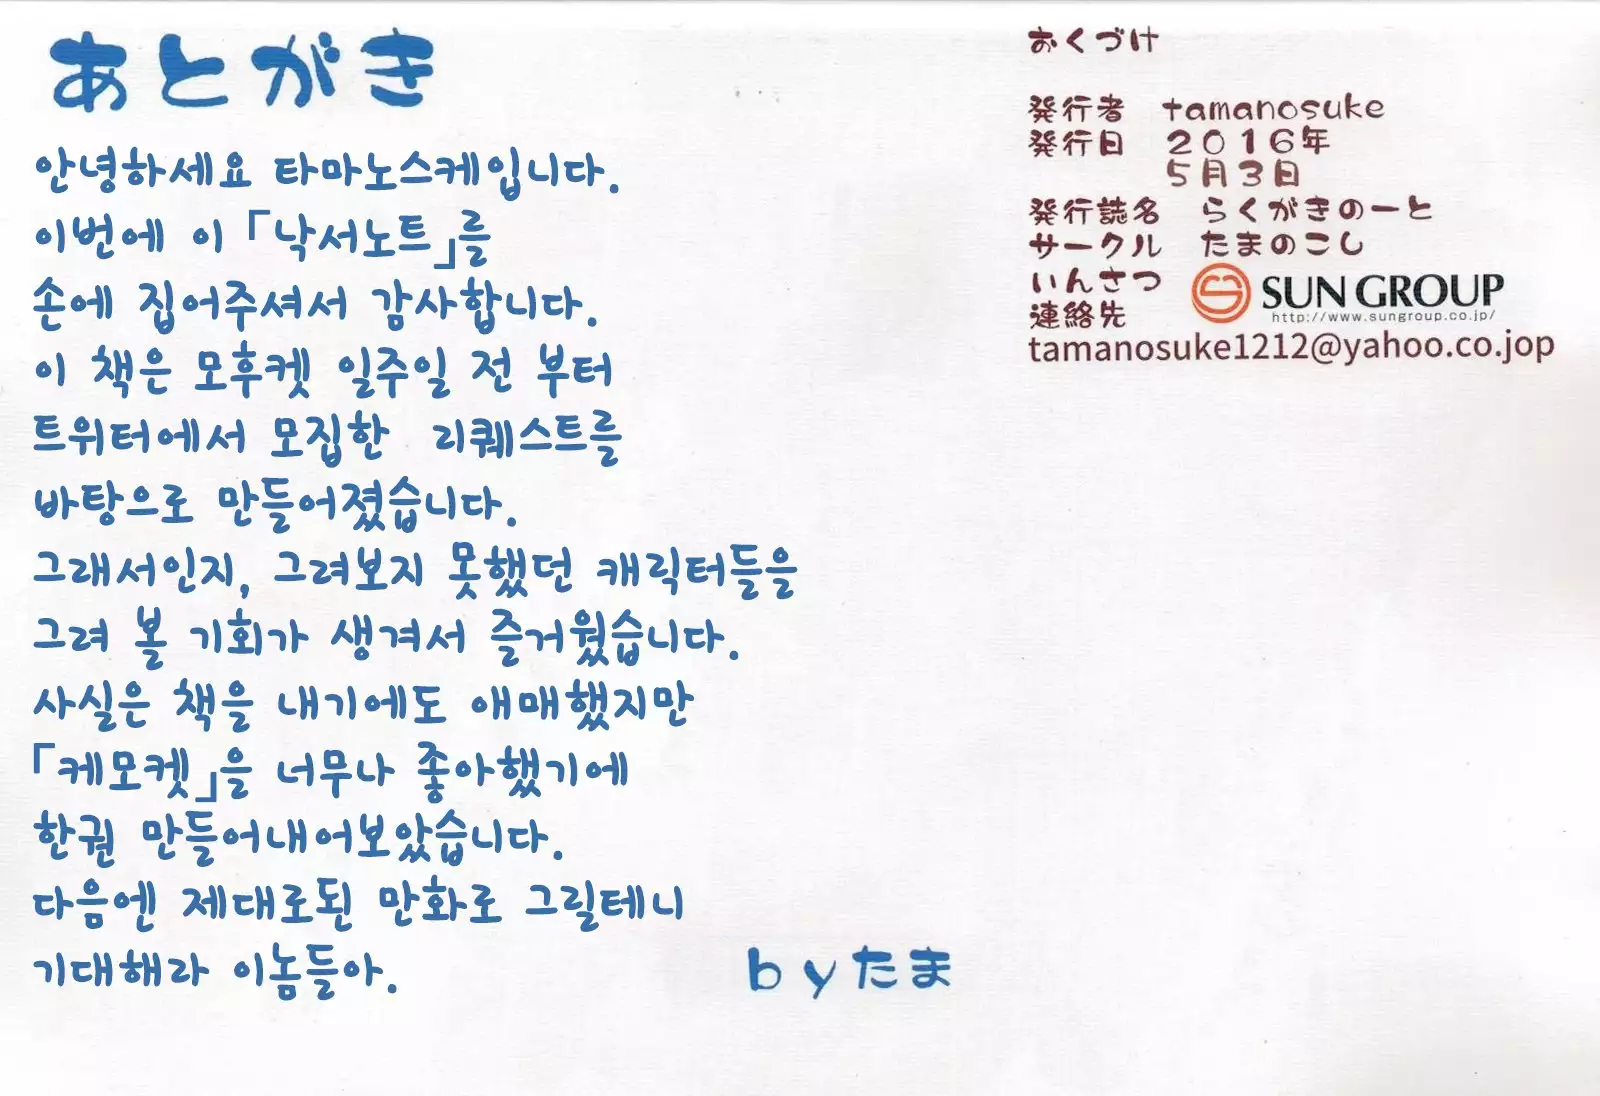 あとがき
안녕하세요 타마노스케입니다.
이번에 이 「낙서노트」를
손에 집어주셔서 감사합니다.
이 책은 모후켓 일주일 전 부터
트위터에서 모집한 리퀘스트를
바탕으로 만들어졌습니다.
그래서인지, 그려보지 못했던 캐릭터들을
그려 볼 기회가 생겨서 즐거웠습니다.
사실은 책을 내기에도 애매했지만
「케모켓」을 너무나 좋아했기에
한권 만들어내어보았습니다.
다음엔 제대로된 만화로 그릴테니
기대해라 이놈들아.
byたま
おくづけ
発行者 tamanosuke
発行日 2016年
5月3日
発行誌名 らくがきのーと
サークル たまのこし
いんさつ SUN GROUP
http://www.sungroup.co.jp/
連絡先
tamanosuke1212@yahoo.co.jop